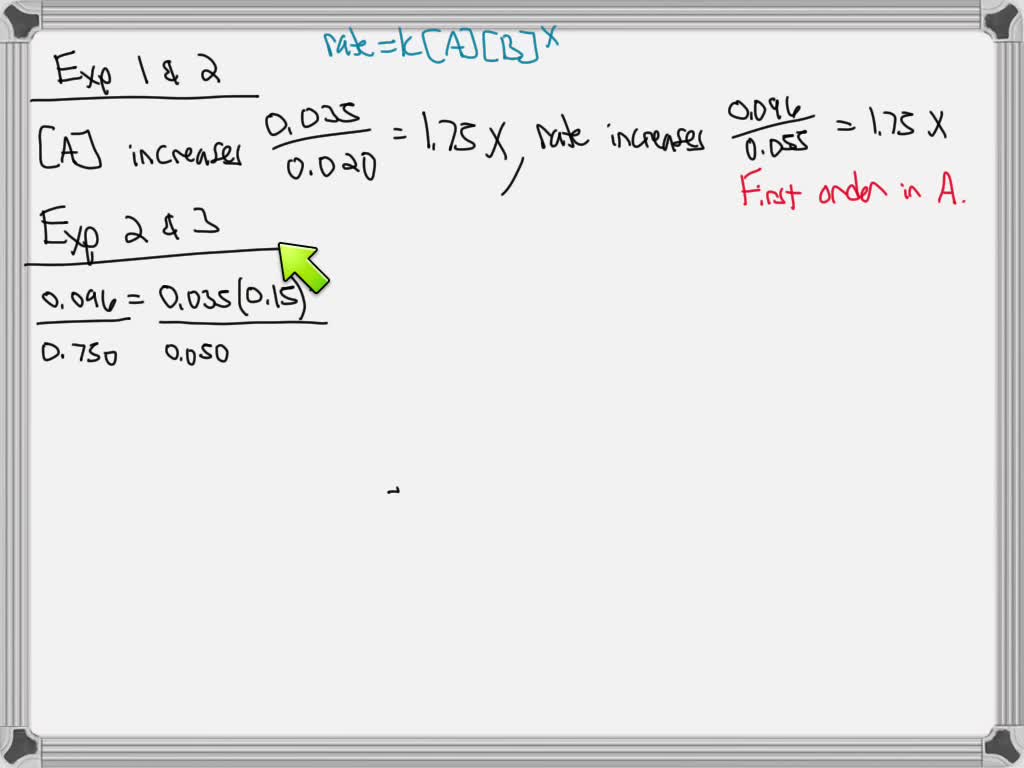 rate = k[A][B]^x
Exp 1 & 2
[A] increases 0.035/0.020 = 1.75 X, rate increases 0.096/0.055 = 1.75 X
First order in A.
Exp 2 & 3
0.096/0.750 = 0.035(0.15)/0.050